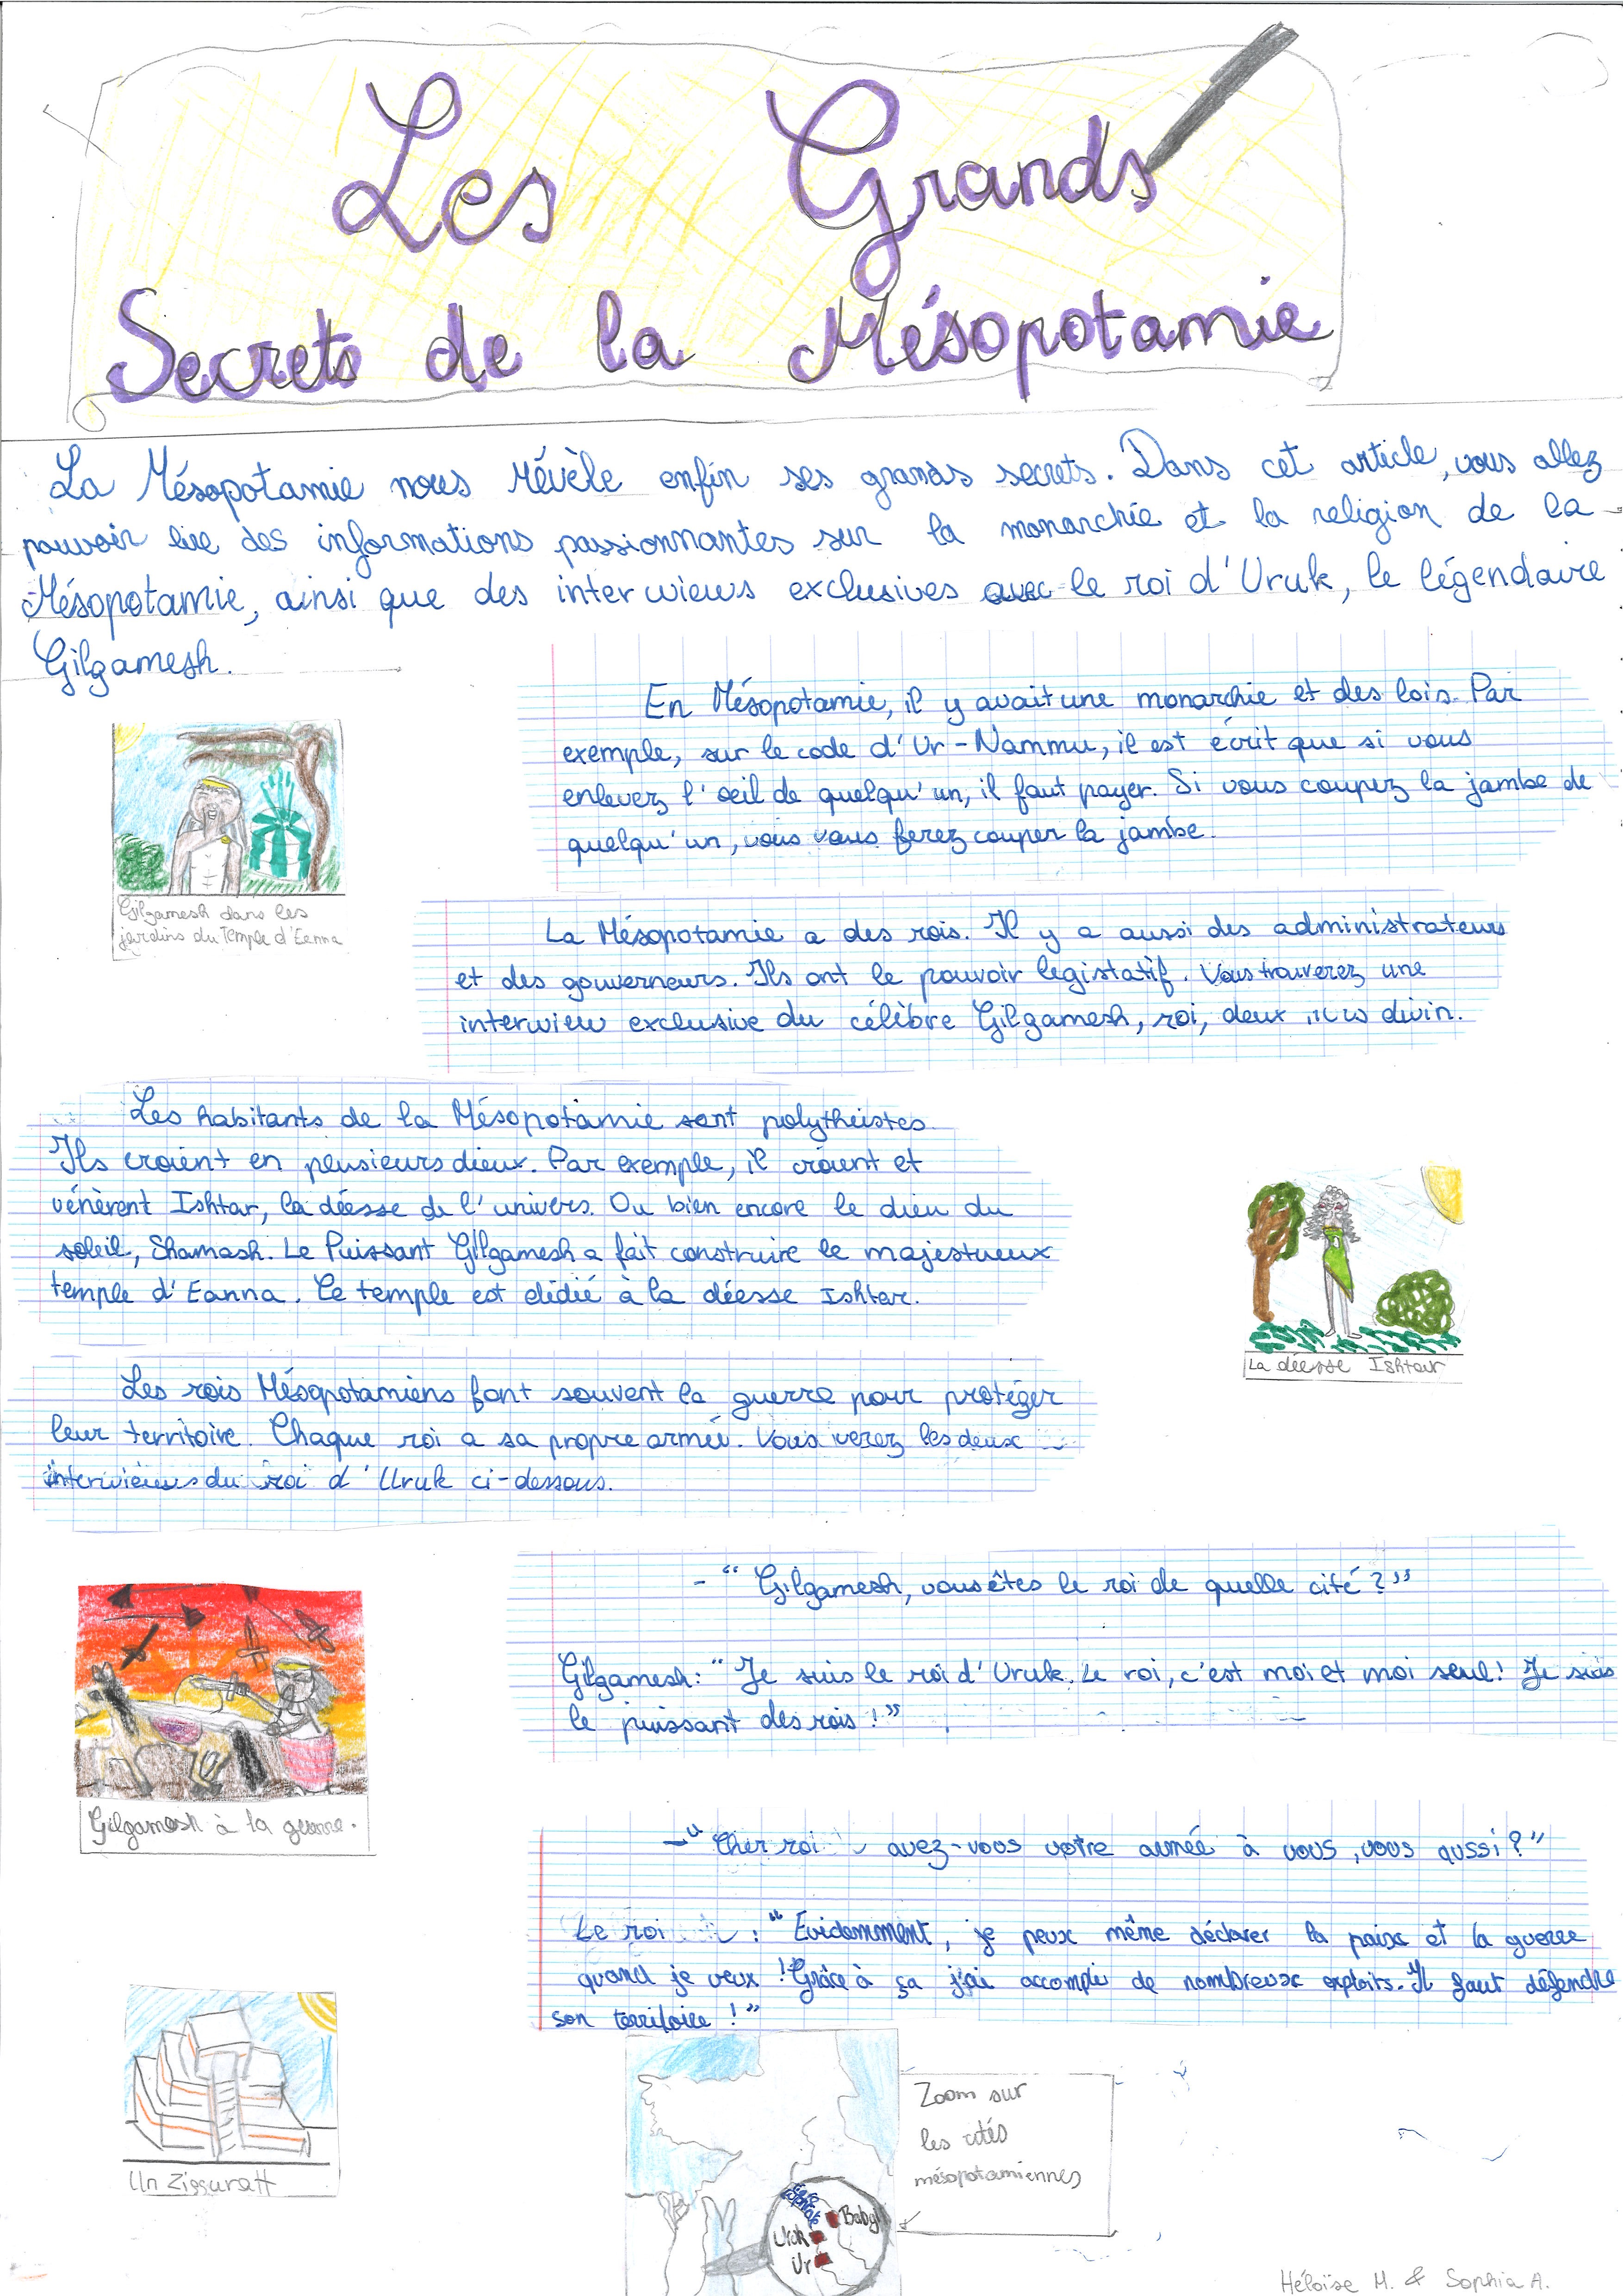 Les Grands
Secrets de la Mésopotamie
La Mésopotamie nous révèle enfin ses grands secrets. Dans cet article, vous allez
pouvoir lire des informations passionnantes sur la monarchie et la religion de la
Mésopotamie, ainsi que des interwiews exclusives avec le roi d'Uruk, le légendaire
Gilgamesh.
En Mésopotamie, il y avait une monarchie et des lois. Par
exemple, sur le code d'Ur-Nammu, il est écrit que si vous
enlevez l'oeil de quelqu'un, il faut payer. Si vous coupez la jambe de
quelqu'un, vous vous ferez couper la jambe.
Gilgamesh dans les
jardins du Temple d'Eanna
La Mésopotamie a des rois. Il y a aussi des administrateurs
et des gouverneurs. Ils ont le pouvoir legistatif. Vous trouverez une
interwiew exclusive du célèbre Gilgamesh, roi, deux divin.
Les habitants de la Mésopotamie sont polythéistes.
Ils croient en plusieurs dieux. Par exemple, il croient et
vénèrent Ishtar, la déesse de l'univers. Ou bien encore le dieu du
soleil, Shamash. Le Puissant Gilgamesh a fait construire le majestueux
temple d'Eanna. Ce temple est dédié à la déesse Ishtar.
La déesse Ishtar
Les rois Mésopotamiens font souvent la guerre pour protéger
leur territoire. Chaque roi a sa propre armée. Vous verez les deux
interwiews du roi d'Uruk ci-dessous.
- "Gilgamesh, vous êtes le roi de quelle cité ?"
Gilgamesh: "Je suis le roi d'Uruk. Le roi, c'est moi et moi seul! Je suis
le puissant des rois !"
Gilgamesh à la guerre.
- "Cher roi avez-vous votre armée à vous, vous aussi ?"
Le roi : "Evidemment, je peux même déclarer la paix et la guerre
quand je veux ! Grâce à ça j'ai accompli de nombreux exploits. Il faut défendre
son territoire !"
Un Zigguratt
Zoom sur
les cités
mésopotamiennes
Baby
Uruk
Ur
Héloïse M. & Sophia A.